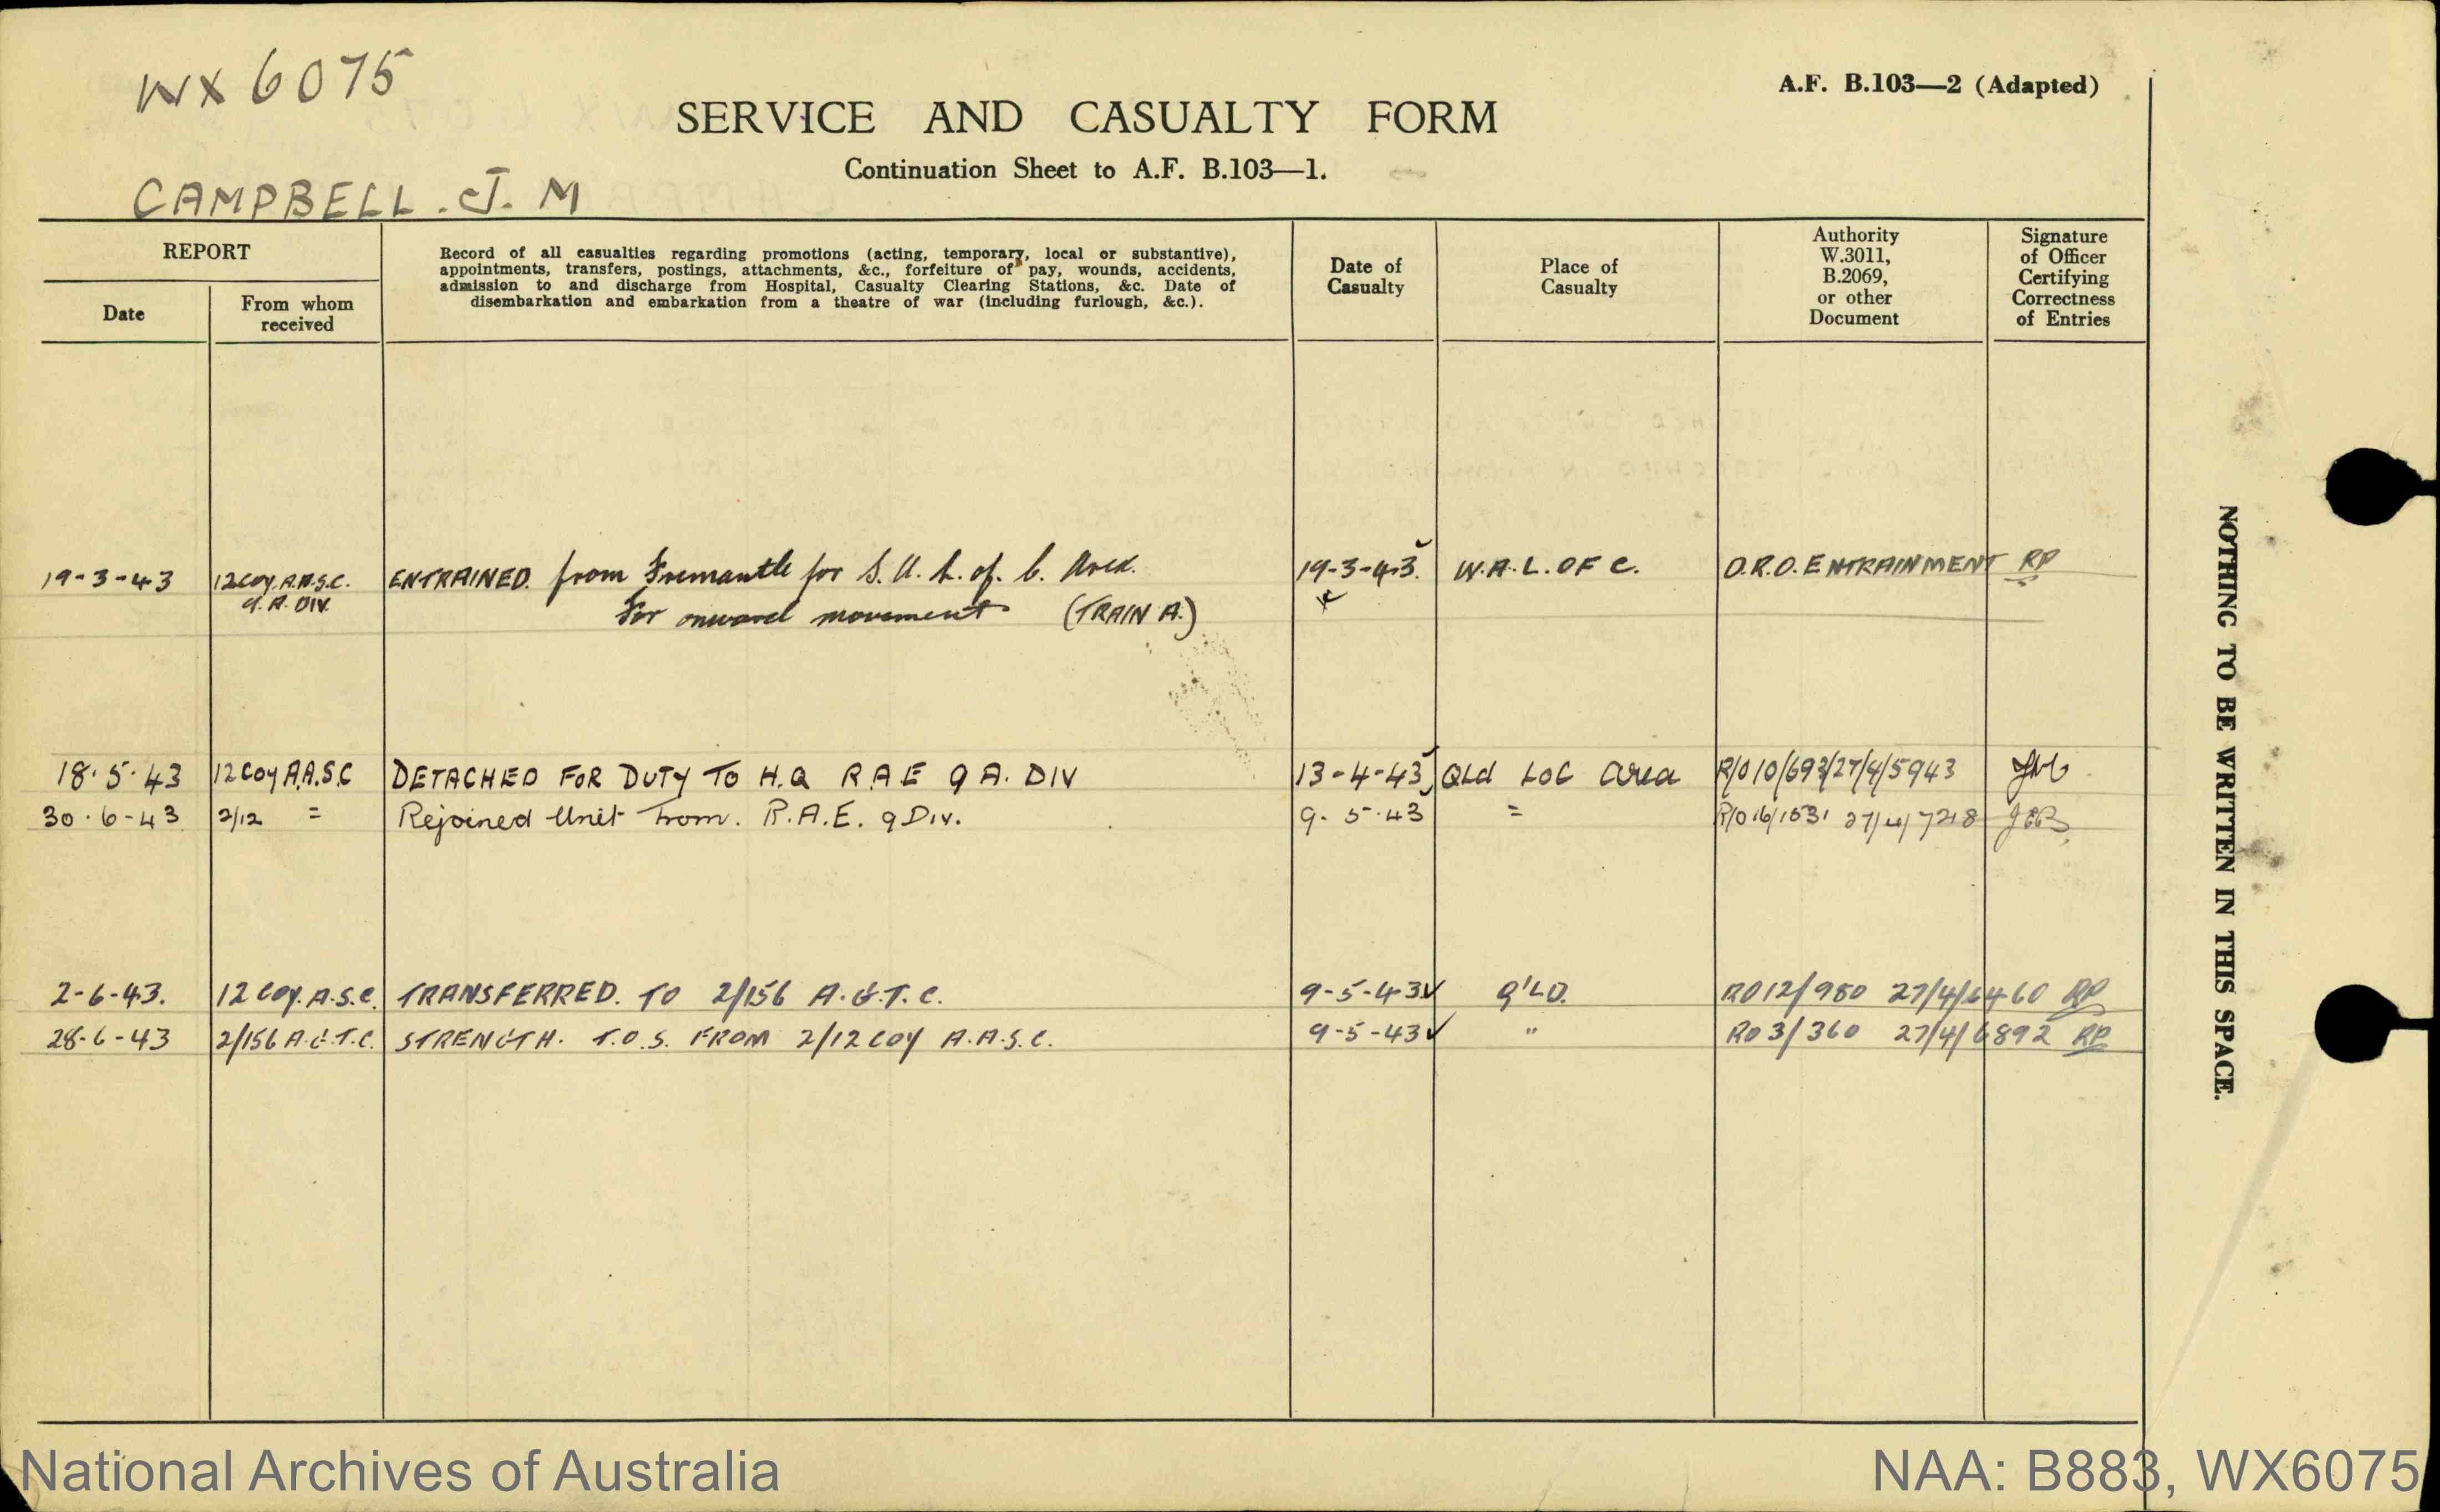 WX 6075
A.F. B.103—2 (Adapted)
SERVICE AND CASUALTY FORM
Continuation Sheet to A.F. B.103—1.
CAMPBELL. J. M
REPORT
Date
From whom
received
Record of all casualties regarding promotions (acting, temporary, local or substantive),
appointments, transfers, postings, attachments, &c., forfeiture of pay, wounds, accidents,
admission to and discharge from Hospital, Casualty Clearing Stations, &c. Date of
disembarkation and embarkation from a theatre of war (including furlough, &c.).
Date of
Casualty
Place of
Casualty
Authority
W.3011,
B.2069,
or other
Document
Signature
of Officer
Certifying
Correctness
of Entries
19-3-43 12 Coy. A.A.S.C. ENTRAINED. from Fremantle for S.A. L. of. C. Area. 19-3-43. W.A. L. OF C. O.R.O. ENTRAINMENT RP
9.A. DIV. For onward movement (TRAIN A.)
18.5.43 12 Coy A.A.S.C DETACHED FOR DUTY TO H.Q R.A.E 9 A. DIV 13-4-43 QLd LOC area R/O 10/693/27/4/5943
30.6-43 2/12 = Rejoined Unit from. R.A.E. 9 Div. 9.5.43 = R/O 16/1531 27/4/7218
2-6-43. 12 Coy. A.S.C. TRANSFERRED. TO 2/156 A.G.T.C. 9-5-43 Q'LD. RO 12/980 27/4/6460 RP
28-6-43 2/156 A.G.T.C. STRENGTH. T.O.S. FROM 2/12 COY A.A.S.C. 9-5-43 " RO 3/360 27/4/6892 RP
NOTHING TO BE WRITTEN IN THIS SPACE.
National Archives of Australia
NAA: B883, WX6075